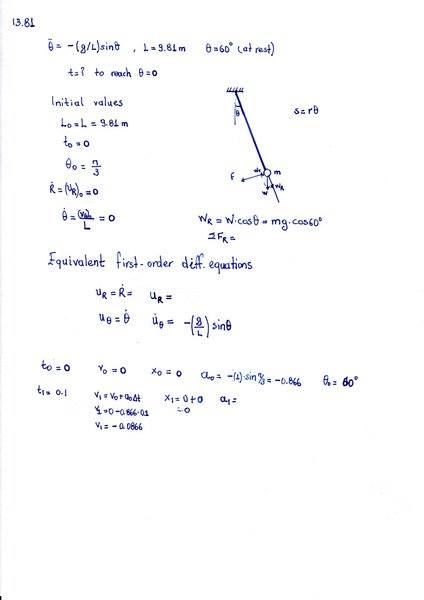 13.81
θ̈ = -(g/L)sinθ , L=9.81m θ=60° (at rest)
t=? to reach θ=0
Initial values
L₀=L = 9.81m
t₀=0
θ₀ = π/3
Ṙ=(U_R)₀=0
θ̇ = (v₀)₀/L = 0
θ
s=rθ
m
F
W
W_R
W_R = W·cosθ = mg·cos60°
ΣF_R =
Equivalent first-order diff. equations
u_R = Ṙ = u̇_R =
u_θ = θ̇ u̇_θ = -(g/L) sinθ
t₀=0 v₀ = 0 x₀ = 0 a₀ = -(1)·sin π/3 = -0.866 θ₀ = 60°
t₁= 0.1 v₁ = v₀+a₀Δt x₁ = 0+0 a₁=
v₁= 0-0.866·0.1 =0
v₁= -0.0866